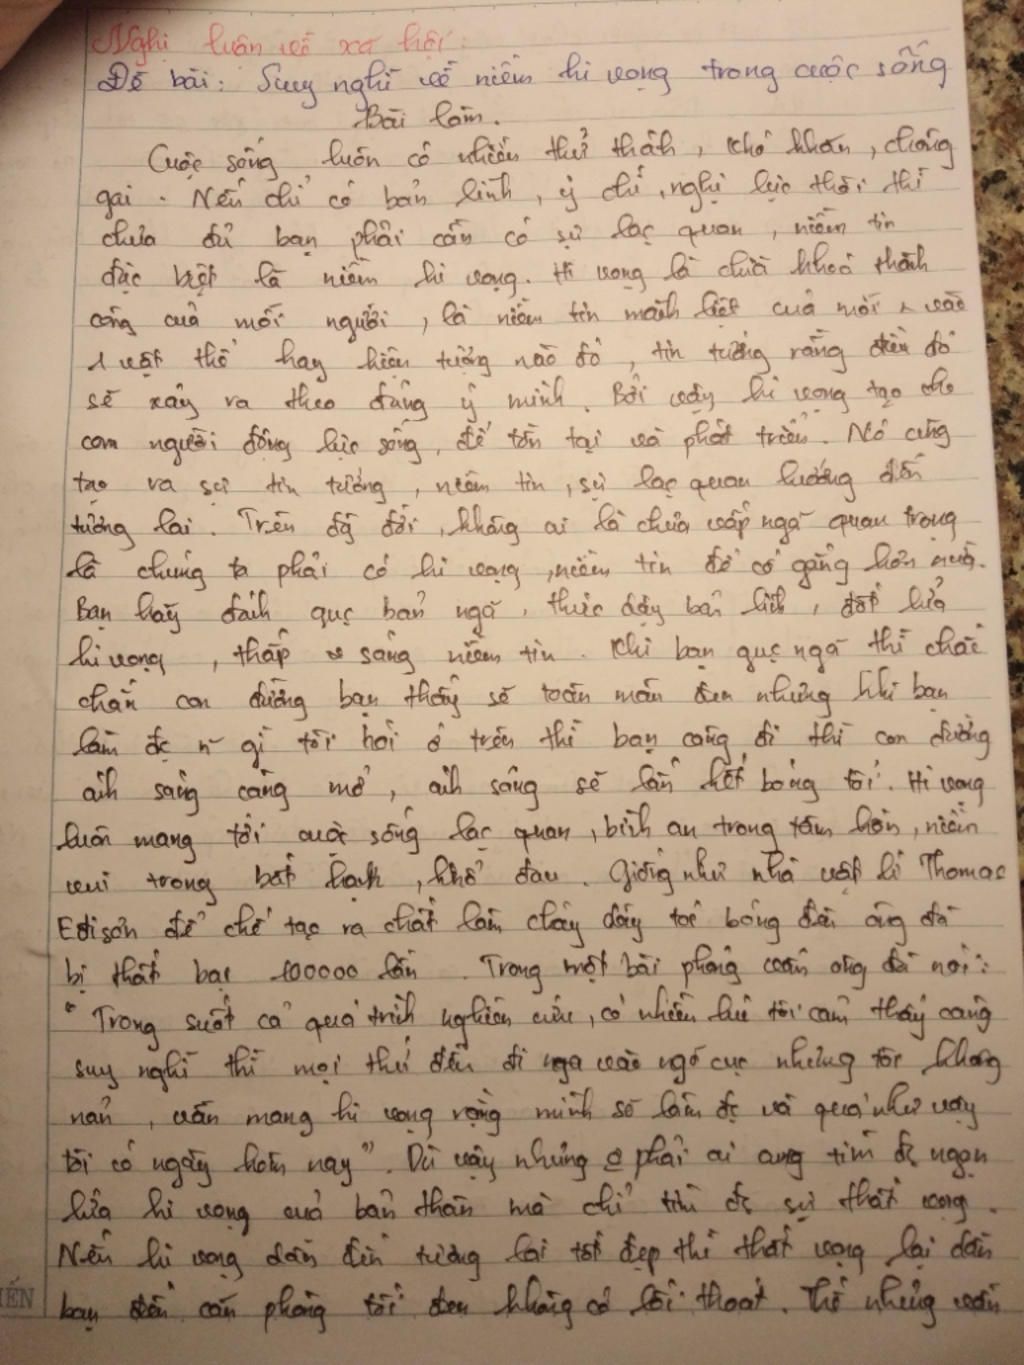 Nghị luận về xã hội:
Đề bài: Suy nghĩ về niềm hi vọng trong cuộc sống
Bài làm.
Cuộc sống luôn có nhiều thử thách, khó khăn, chông
gai. Nếu chỉ có bản lĩnh, ý chí, nghị lực thôi thì
chưa đủ bạn phải cần có sự lạc quan, niềm tin
đặc biệt là niềm hi vọng. Hi vọng là chìa khoá thành
công của mỗi người, là niềm tin mãnh liệt của mỗi vào
1 vật thể hay hiện tượng nào đó, tin tưởng rằng điều đó
sẽ xảy ra theo đúng ý mình. Bởi vậy hi vọng tạo cho
con người động lực sống, để tồn tại và phát triển. Nó cũng
tạo ra sự tin tưởng, niềm tin, sự lạc quan hướng đến
tương lai. Trên đời, không ai là chưa vấp ngã quan trọng
là chúng ta phải có hi vọng, niềm tin để cố gắng hơn nữa.
Bạn hãy đánh gục bản ngã, thức dậy bản lĩnh, đốt lửa
hi vọng, thắp sáng niềm tin. Khi bạn gục ngã thì chắc
chắn con đường bạn thấy sẽ toàn màn đen nhưng khi bạn
làm đc n~ gì tôi nói ở trên thì bạn càng đi thì con đường
ánh sáng càng mở, ánh sáng sẽ lấn hết bóng tối. Hi vọng
luôn mang tới cuộc sống lạc quan, bình an trong tâm hồn, niềm
vui trong bất hạnh, khổ đau. Giống như nhà vật lí Thomas
Edison để chế tạo ra chất làm cháy dây tóc bóng đèn ông đã
bị thất bại 100000 lần. Trong một bài phỏng vấn ông đã nói:
"Trong suốt cả quá trình nghiên cứu, có nhiều lúc tôi cảm thấy càng
suy nghĩ thì mọi thứ đều đi vào ngõ cục nhưng tôi không
nản, vẫn mang hi vọng rằng mình sẽ làm đc và quả như vậy
tôi có ngày hôm nay". Dù vậy nhưng phải ai cũng tìm đc ngọn
lửa hi vọng của bản thân mà chỉ tìm đc sự thất vọng.
Nếu hi vọng dẫn đến tương lai tốt đẹp thì thất vọng lại dẫn
bạn đến căn phòng tối đen không có lối thoát. Thế nhưng vẫn